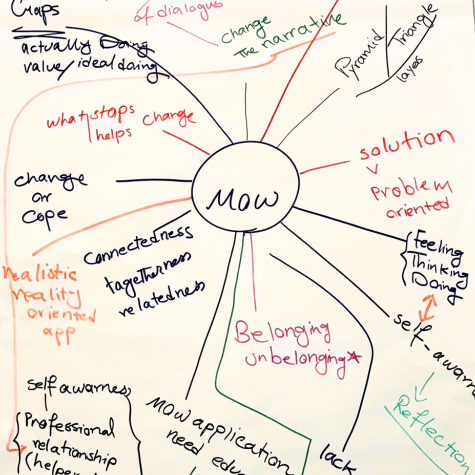 Craps
actually Doing
value/ideal doing
of dialogus
change
the narrative
Pyramid
Triangle
layes
what stops
helps
change
solution
v
problem
oriented
change
or
cope
MOW
Connectedness
togetherness
relatedness
Feeling
Thinking
Doing
realistic
reality
oriented
app
Belonging
unbelonging*
self-awarn
Reflection
self awarnes
Professional
relationship
(helpe
MOW application
need edu
lack